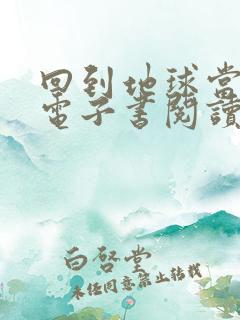 回到地球當
電子書閱讀
白啓堂
未經同意禁止轉載